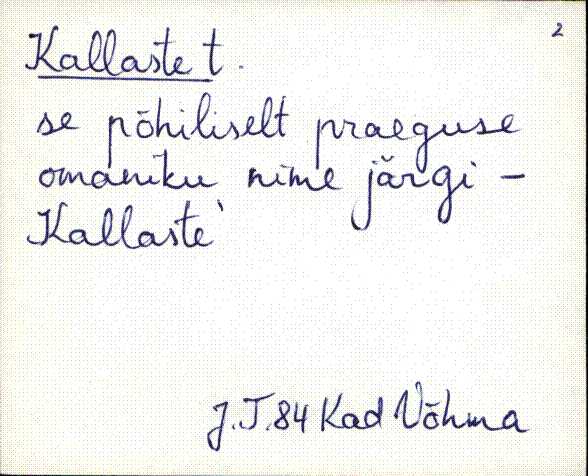 2
Kallaste t.
se põhiliselt praeguse
omaniku nime järgi -
Kallaste`
J.T.84 Kad Võhma